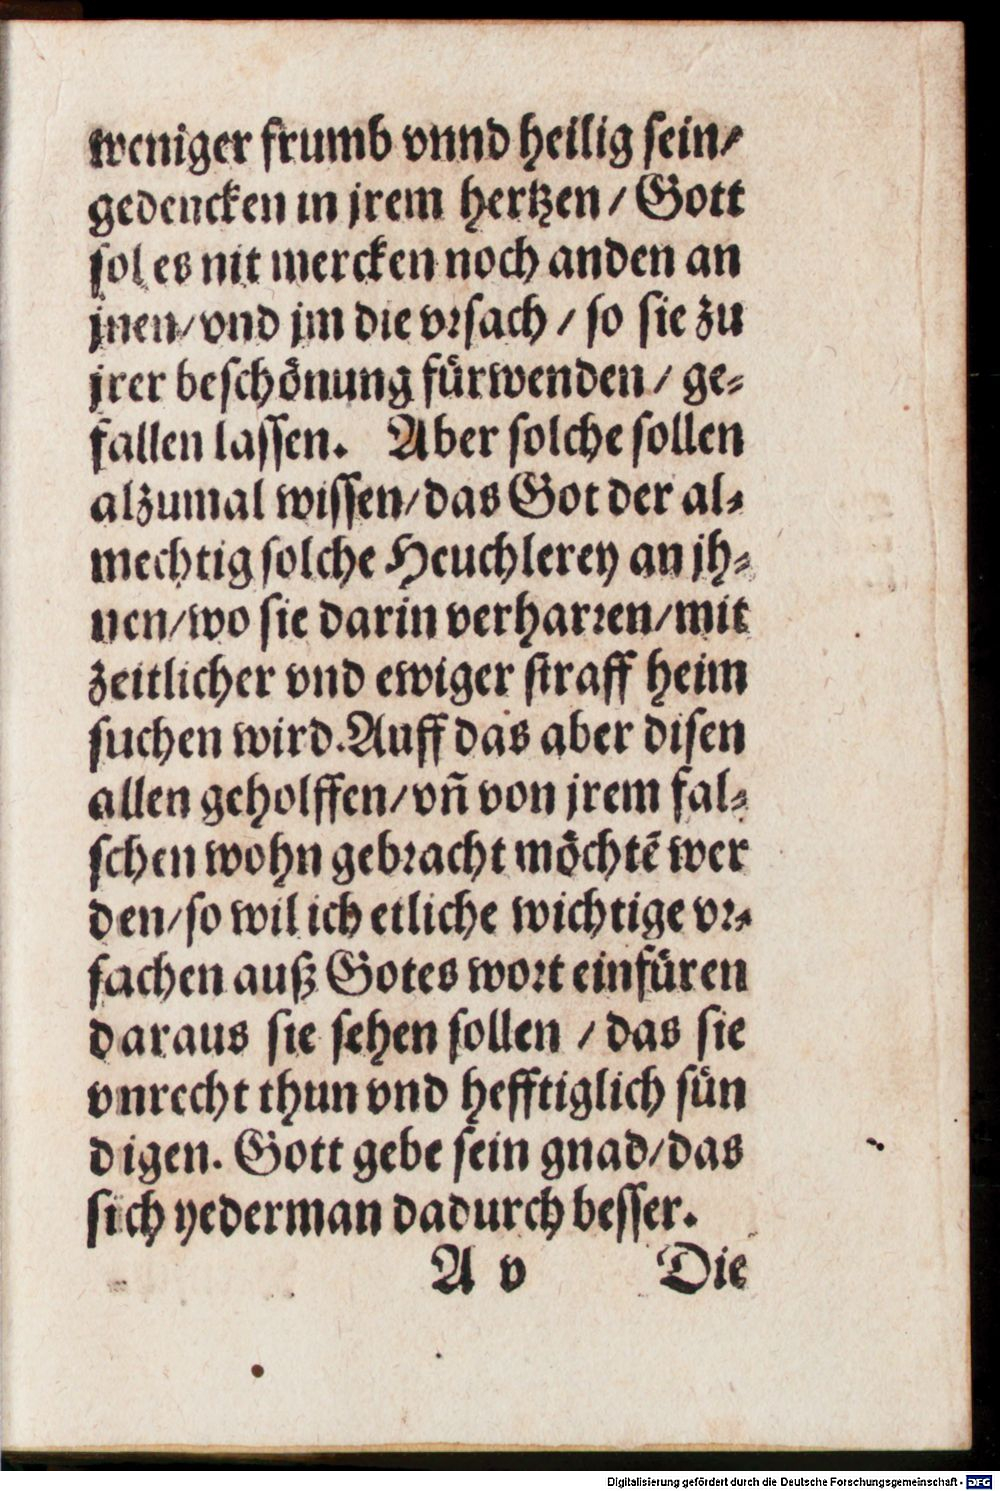 weniger frumb vnnd heilig sein/
gedencken in jrem hertzen / Gott
sol es nit mercken noch anden an
jnen/ vnd jm die vrsach / so sie zu
jrer beschönung fürwenden / ge⸗
fallen lassen. Aber solche sollen
alzumal wissen/ das Got der al⸗
mechtig solche Heuchlerey an jh⸗
nen/ wo sie darin verharren/ mit
zeitlicher vnd ewiger straff heim
suchen wird. Auff das aber disen
allen geholffen/ vñ von jrem fal⸗
schen wohn gebracht möchtẽ wer
den/ so wil ich etliche wichtige vr⸗
sachen auß Gotes wort einfüren
daraus sie sehen sollen / das sie
vnrecht thun vnd hefftiglich sün
digen. Gott gebe sein gnad/ das
sich yederman dadurch besser.
A v Die
Digitalisierung gefördert durch die Deutsche Forschungsgemeinschaft - DFG